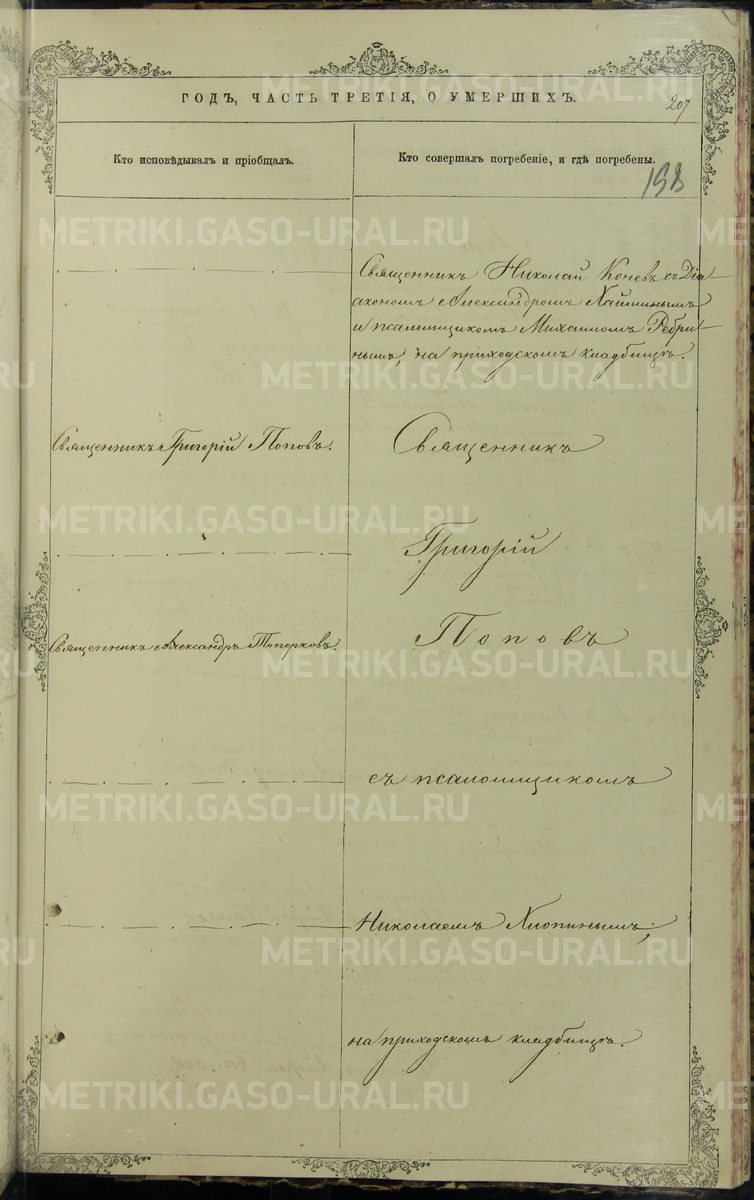 ГОДЪ, ЧАСТЬ ТРЕТІЯ, О УМЕРШИХЪ.
207
Кто исповѣдывалъ и пріобщалъ.
Кто совершалъ погребеніе, и гдѣ погребены.
198
Священникъ Николай Коневъ съ Діа-
акономъ Александромъ
и псаломщикомъ Михаиломъ Ребри-
нымъ, на приходскомъ кладбищѣ.
Священникъ Григорій Поповъ.
Священникъ
Григорій
Священникъ Александръ Топорковъ.
Поповъ
съ псаломщикомъ
Николаемъ Хлопинымъ,
на приходскомъ кладбищѣ.
METRIKI.GASO-URAL.RU